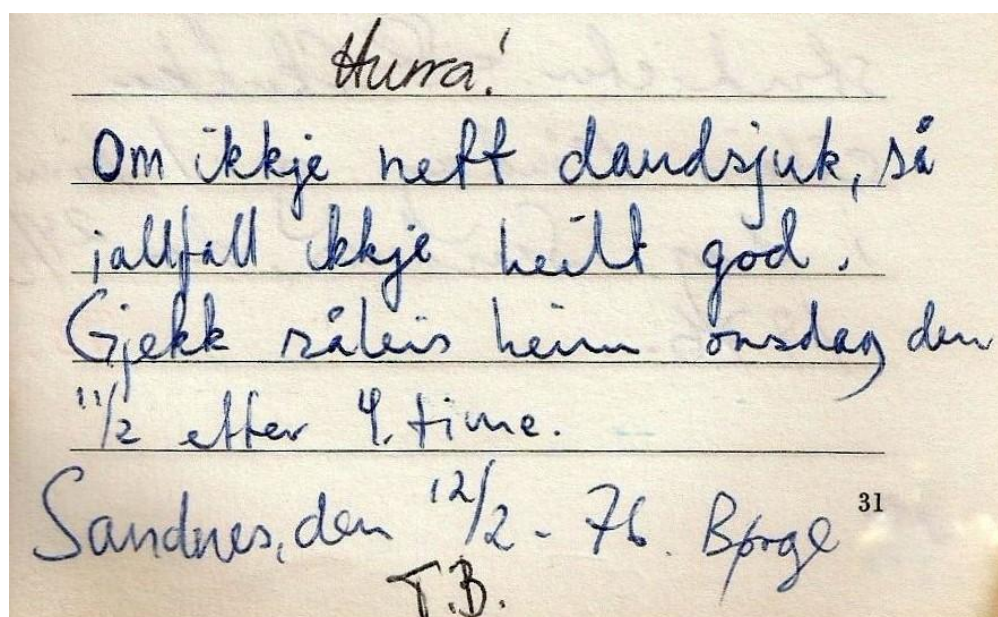 Hurra!
Om ikkje nett daudsjuk, så
iallfall ikkje heilt god.
Gjekk såleis heim onsdag den
11/2 etter 4. time.
Sandnes, den 12/2 - 76. Børge
31
T.B.